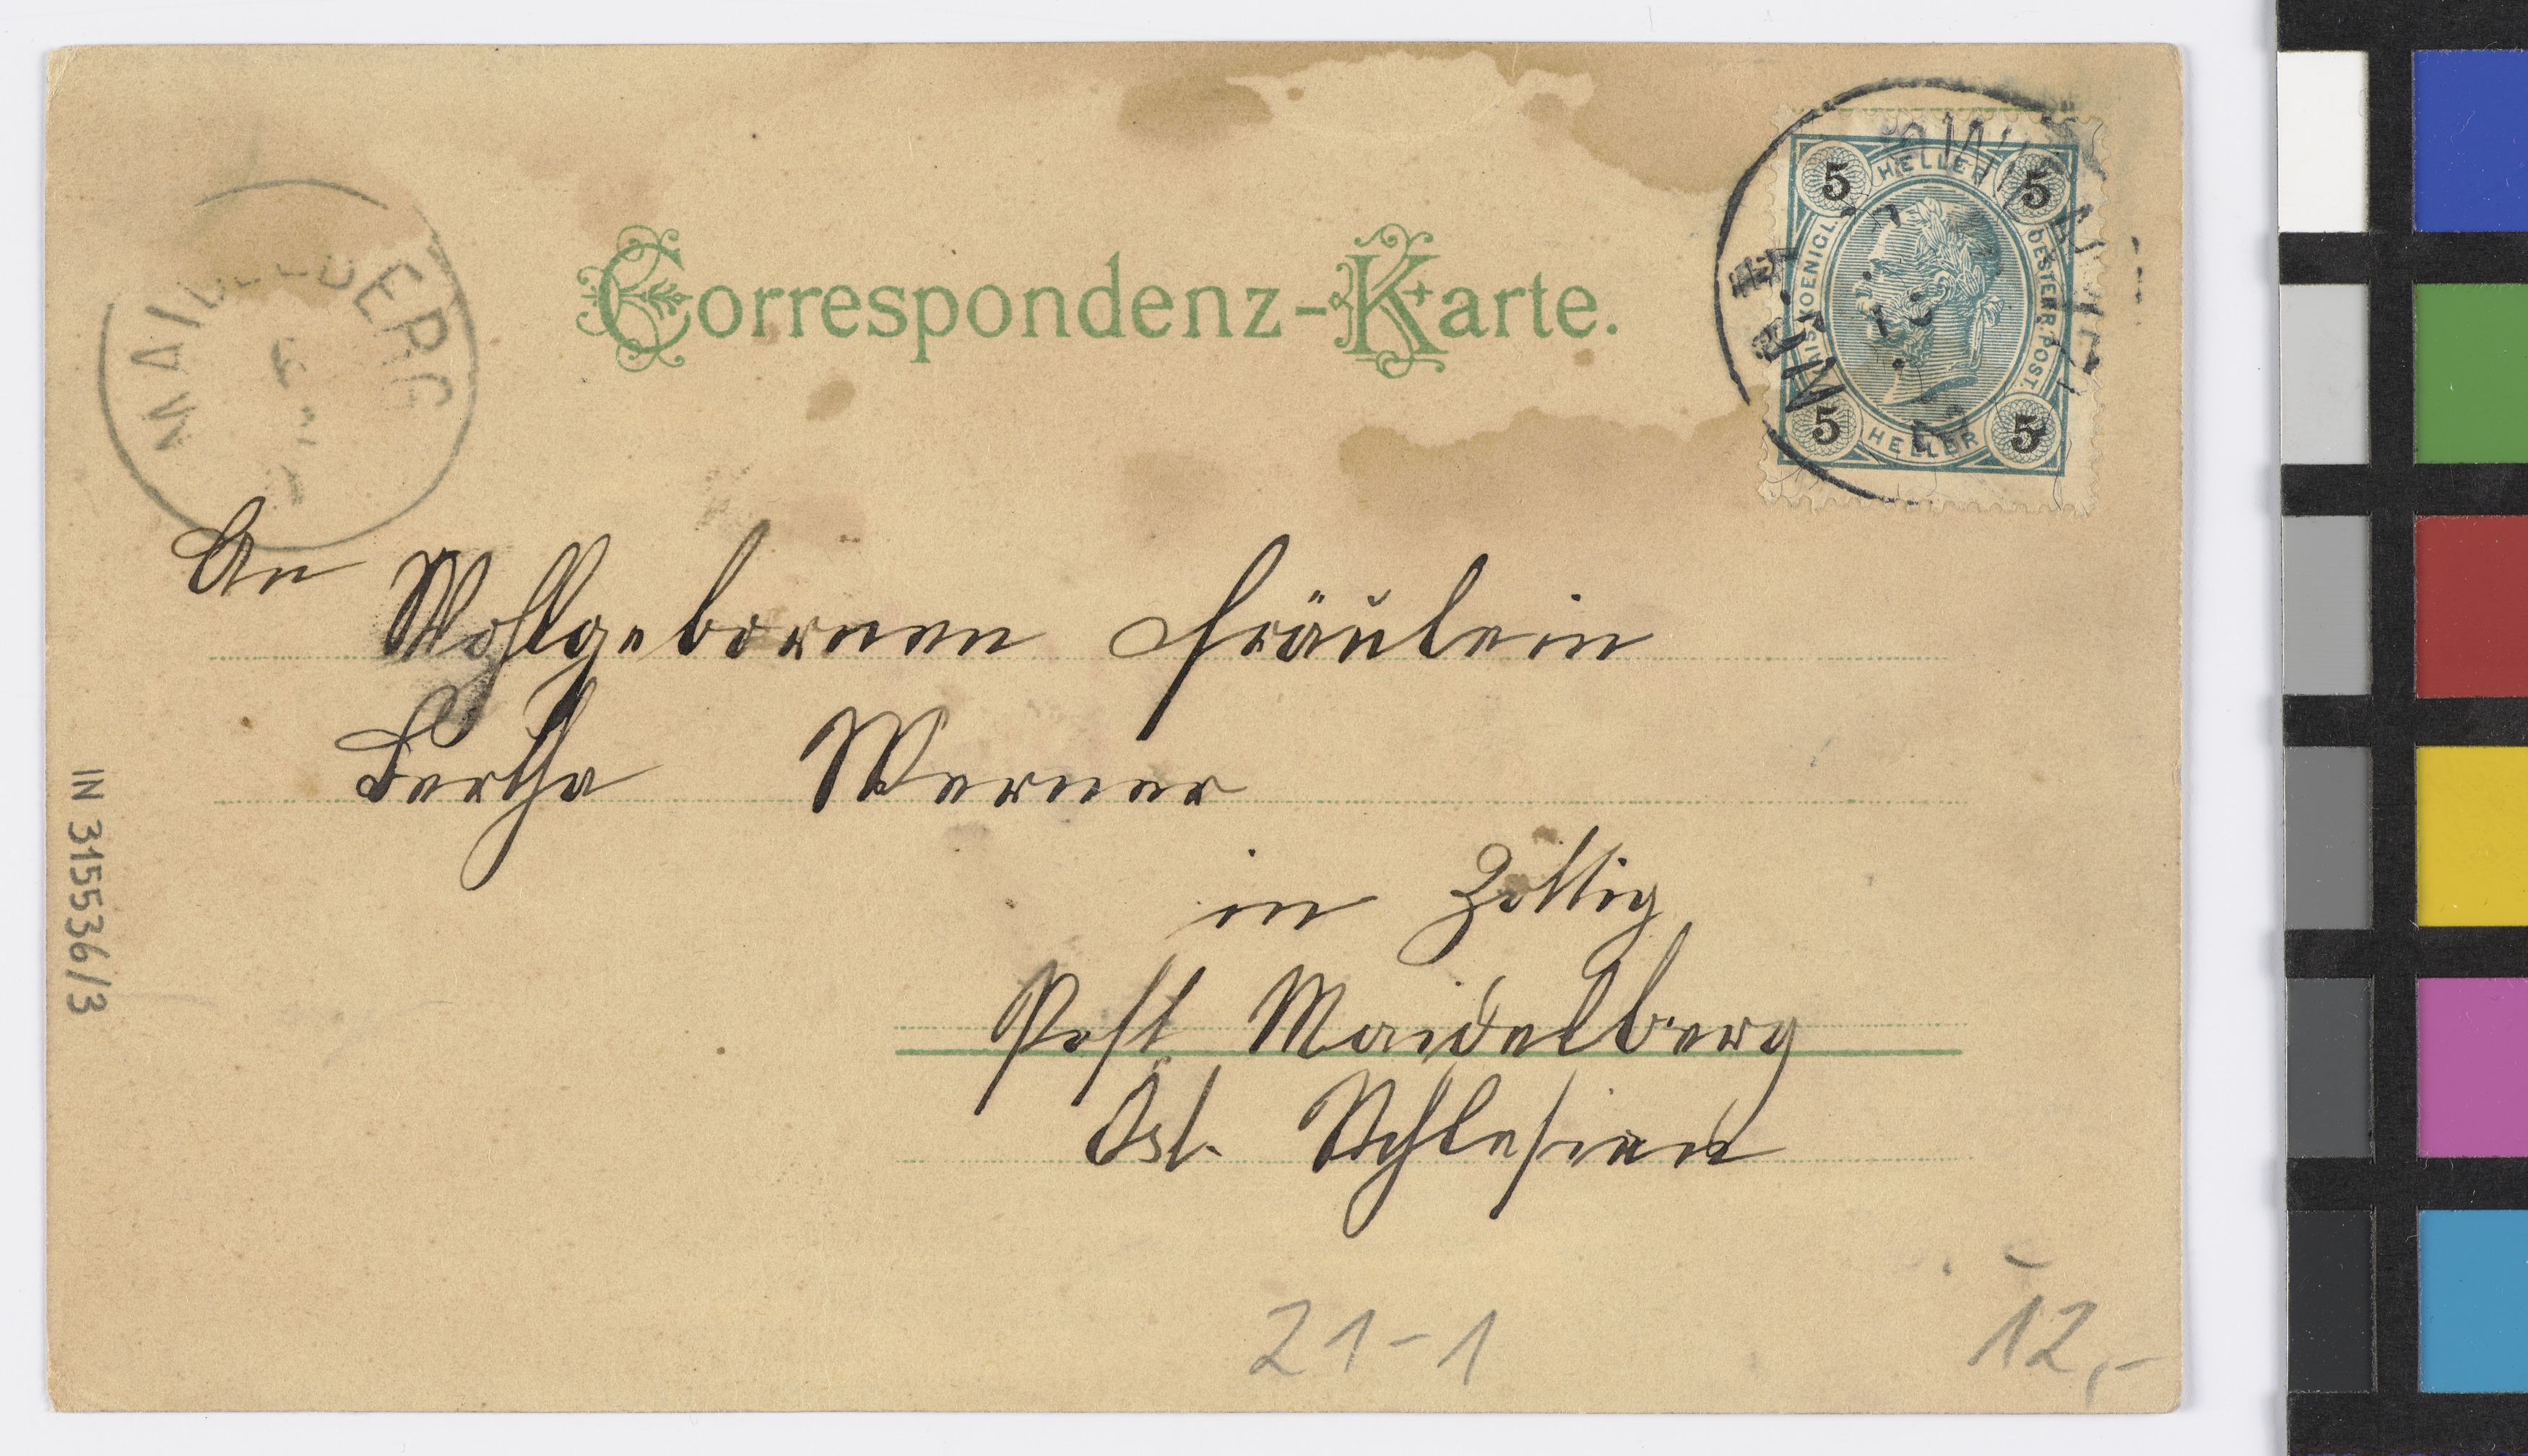 MAIDELBERG
Correspondenz-Karte.
5 HELLER 5
KAIS. KOENIGL. OESTERR. POST.
5 HELLER 5
An
Wohlgebornen Fräulein
Bertha Werner
in Zottig
Post Maidelberg
Öst. Schlesien
IN 315536/3
21-1
12,-